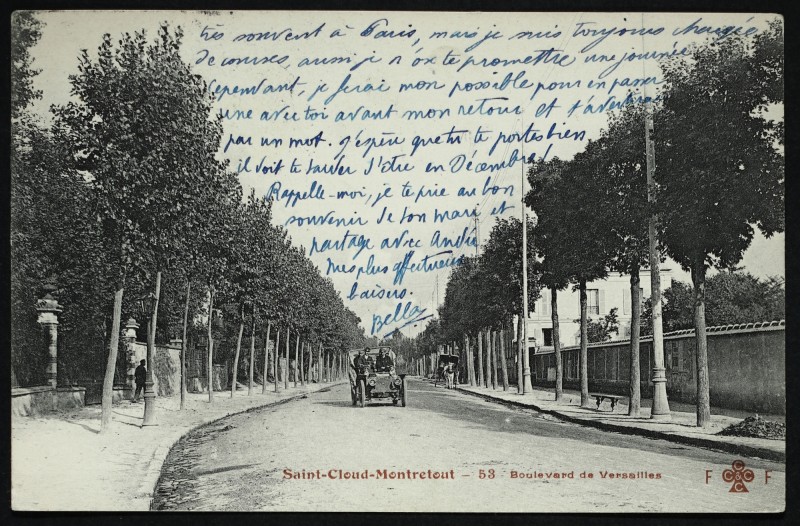 très souvent à Paris, mais je suis toujours chargée
de courses, aussi je n'ose te promettre une journée
cependant, je ferai mon possible pour en passer
une avec toi avant mon retour et t'avertirai
par un mot. J'espère que tu te portes bien
il doit te tarder d'être en Décembre!
Rappelle-moi, je te prie au bon
souvenir de ton mari et
partage avec André
mes plus affectueux
baisers.
Bella
Saint-Cloud-Montretout - 53 Boulevard de Versailles
F C C C F